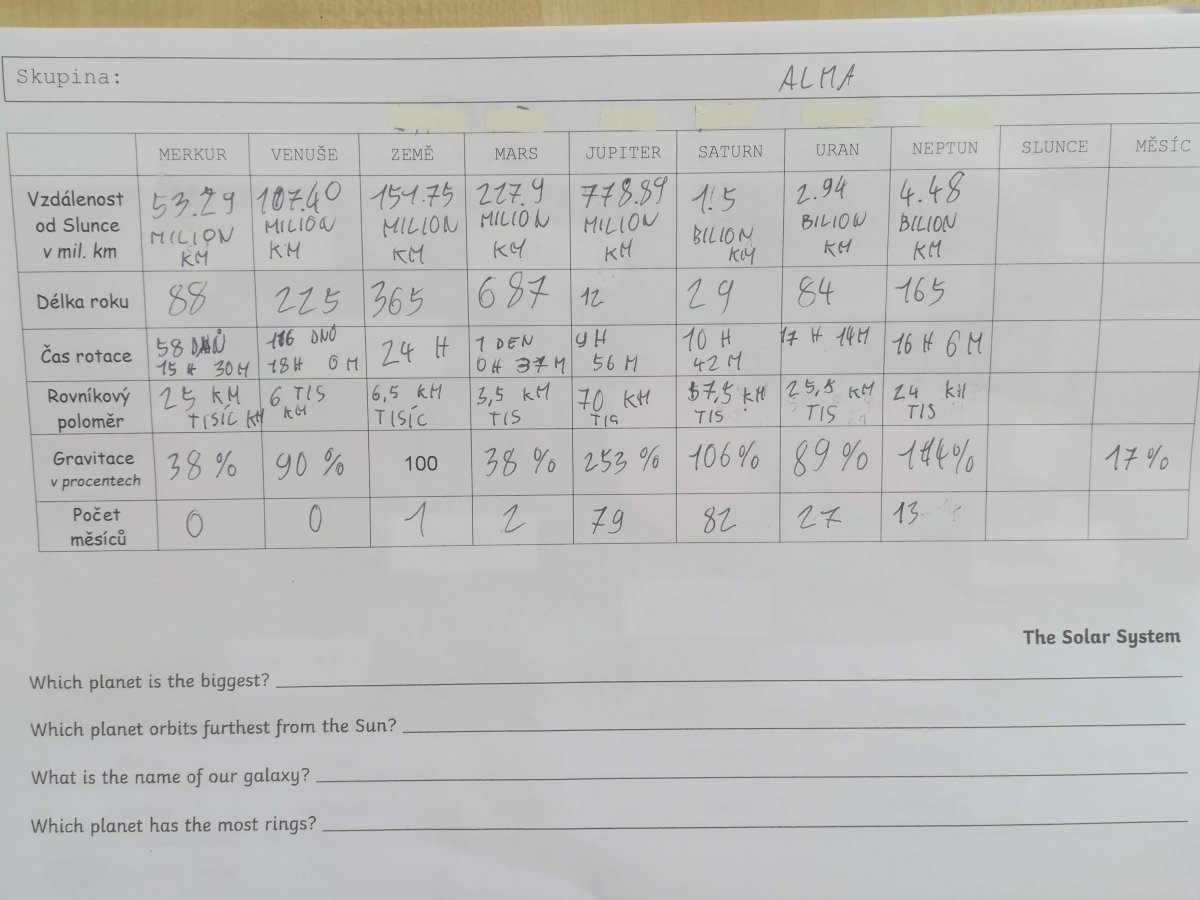 Skupina: ALMA
MERKUR VENUŠE ZEMĚ MARS JUPITER SATURN URAN NEPTUN SLUNCE MĚSÍC
Vzdálenost od Slunce v mil. km
53.29 MILION KM
107.40 MILION KM
151.75 MILION KM
227.9 MILION KM
778.89 MILION KM
1.5 BILION KM
2.94 BILION KM
4.48 BILION KM
Délka roku 88 225 365 687 12 29 84 165
Čas rotace
58 DNŮ 15 H 30 M
116 DNŮ 18 H 0 M
24 H
1 DEN 0 H 37 M
9 H 56 M
10 H 42 M
17 H 14 M
16 H 6 M
Rovníkový poloměr
25 KM TISÍC KM
6 TIS KM
6,5 KM TISÍC
3,5 KM TIS
70 KM TIS
57,5 KM TIS
25,5 KM TIS
24 KM TIS
Gravitace v procentech
38 % 90 % 100 38 % 253 % 106% 89 % 114% 17 %
Počet měsíců
0 0 1 2 79 82 27 13
The Solar System
Which planet is the biggest?
Which planet orbits furthest from the Sun?
What is the name of our galaxy?
Which planet has the most rings?